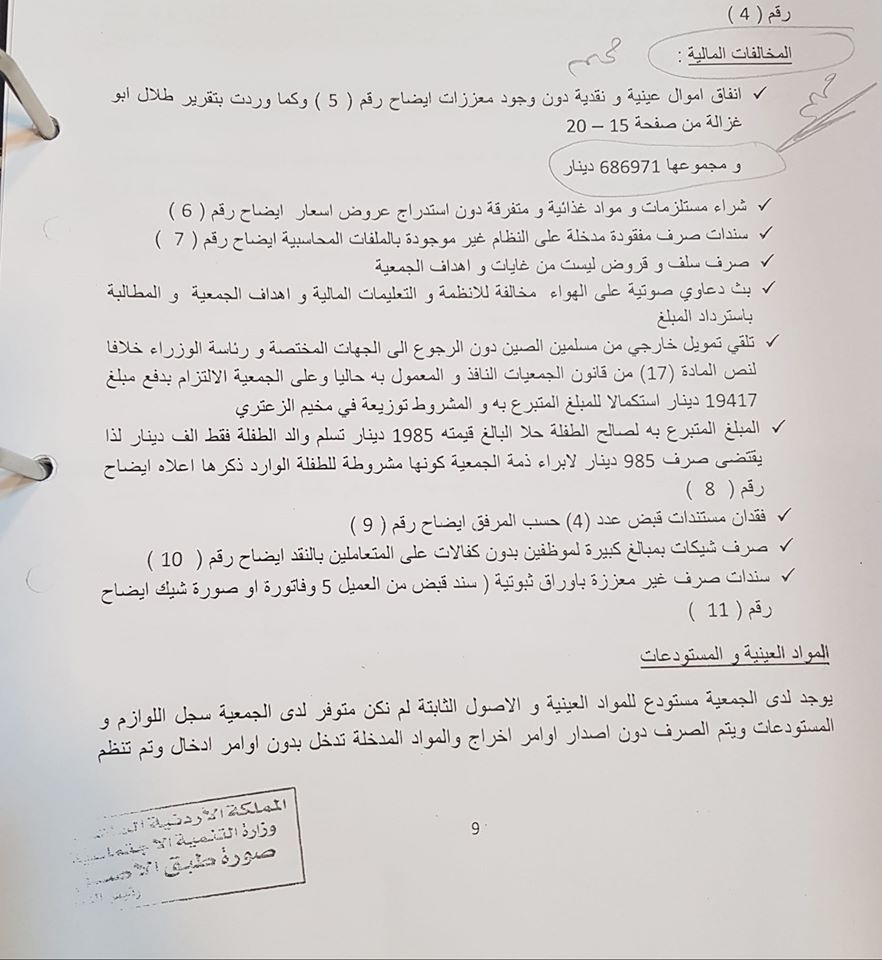 رقم ( 4 )
المخالفات المالية :
✓ انفاق اموال عينية و نقدية دون وجود معززات ايضاح رقم ( 5 ) وكما وردت بتقرير طلال ابو
غزالة من صفحة 15 – 20
و مجموعها 686971 دينار
✓ شراء مستلزمات و مواد غذائية و متفرقة دون استدراج عروض اسعار ايضاح رقم ( 6 )
✓ سندات صرف مفقودة مدخلة على النظام غير موجودة بالملفات المحاسبية ايضاح رقم ( 7 )
✓ صرف سلف و قروض ليست من غايات و اهداف الجمعية
✓ بث دعاوي صوتية على الهواء مخالفة للانظمة و التعليمات المالية و اهداف الجمعية و المطالبة
باسترداد المبلغ
✓ تلقي تمويل خارجي من مسلمين الصين دون الرجوع الى الجهات المختصة و رئاسة الوزراء خلافا
لنص المادة (17) من قانون الجمعيات النافذ و المعمول به حاليا وعلى الجمعية الالتزام بدفع مبلغ
19417 دينار استكمالا للمبلغ المتبرع به و المشروط توزيعة في مخيم الزعتري
✓ المبلغ المتبرع به لصالح الطفلة حلا البالغ قيمته 1985 دينار تسلم والد الطفلة فقط الف دينار لذا
يقتضى صرف 985 دينار لابراء ذمة الجمعية كونها مشروطة للطفلة الوارد ذكرها اعلاه ايضاح
رقم ( 8 )
✓ فقدان مستندات قبض عدد (4) حسب المرفق ايضاح رقم ( 9 )
✓ صرف شيكات بمبالغ كبيرة لموظفين بدون كفالات على المتعاملين بالنقد ايضاح رقم ( 10 )
✓ سندات صرف غير معززة باوراق ثبوتية ( سند قبض من العميل 5 وفاتورة او صورة شيك ايضاح
رقم ( 11 )
المواد العينية و المستودعات
يوجد لدى الجمعية مستودع للمواد العينية و الاصول الثابتة لم نكن متوفر لدى الجمعية سجل اللوازم و
المستودعات ويتم الصرف دون اصدار اوامر اخراج والمواد المدخلة تدخل بدون اوامر ادخال وتم تنظم
9
المملكة الأردنية
وزارة التنمية الاجتماعية
صورة طبق الأصل